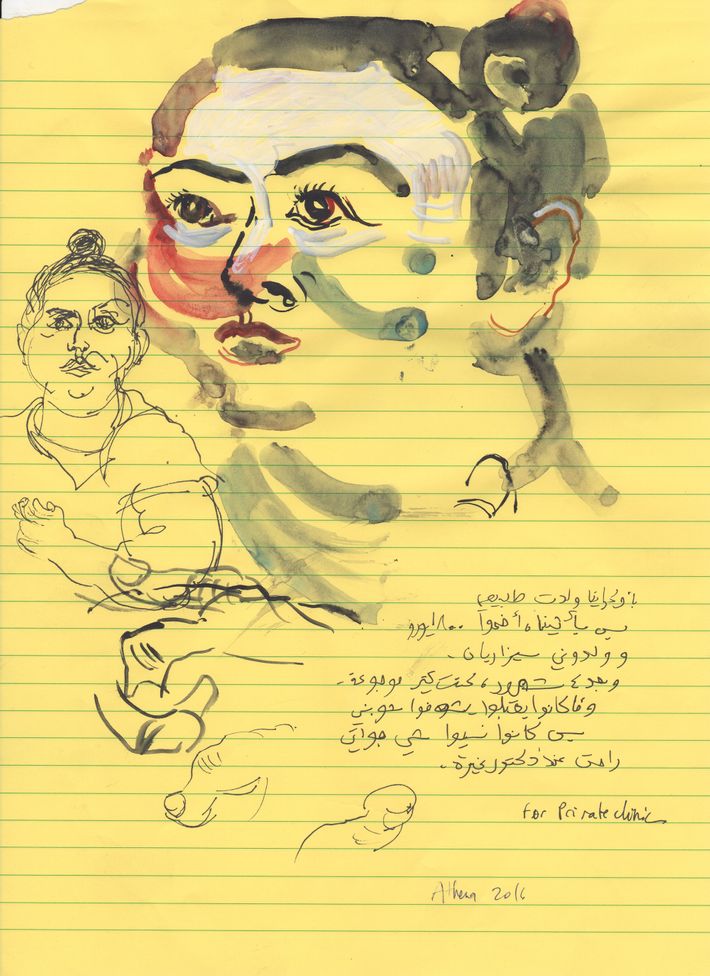 بأوكرانيا ولدت طبيعي
بس بأثينا، أخذوا ٨٠٠ يورو
وولدوني سيزاريان.
وبعد ٤ شهور، كنت كتير موجوعة.
وما كانوا يقبلوا يشوفوا شو بني
بس كانوا نسيوا شي جواتي
راحت عند دكتور غيره.
for Private clinic
2016